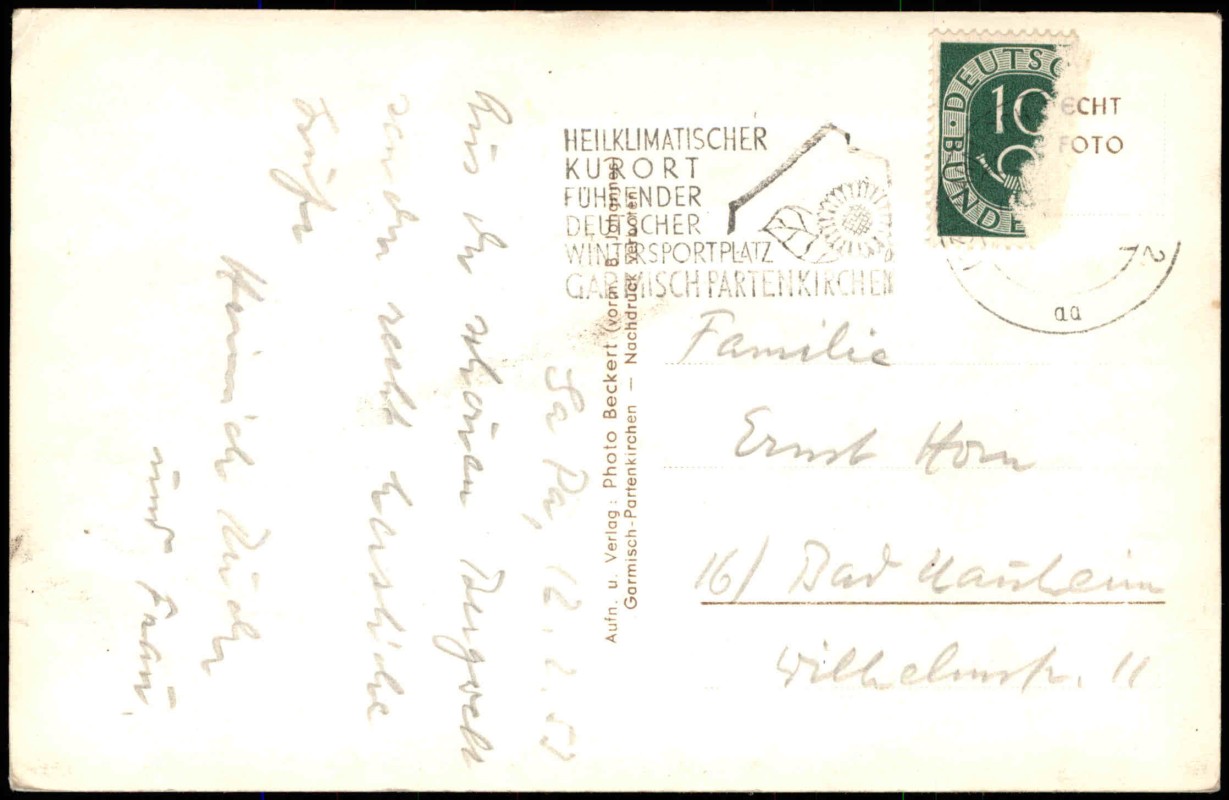 Ga Pa, 12.2.52
Aus der schönen Bergwelt
senden recht herzliche
Grüße
Heinrich
und Frau.
Aufn. u. Verlag: Photo Beckert (vorm. B. Johannes)
Garmisch-Partenkirchen – Nachdruck verboten
HEILKLIMATISCHER
KURORT
FÜHRENDER
DEUTSCHER
WINTERSPORTPLATZ
GARMISCH PARTENKIRCHEN
DEUTSC
10
BUNDE
ECHT
FOTO
aa
Familie
Ernst Horn
16/ Bad Nauheim
Wilhelmstr. 11